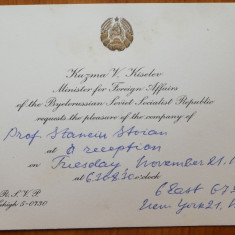 Kuzma V. Kiselev
Minister for Foreign Affairs
of the Byelorussian Soviet Socialist Republic
requests the pleasure of the company of
Prof. Stanciu Stoian
at a reception
on Tuesday, November 21.
at 6:30-8:30 o'clock
R. S. V. P.
6 East 67
New York 21, N